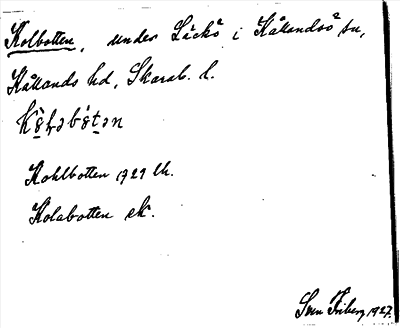 Kolbotten, under Läckö i Kållandsö sn,
Kållands hd, Skarab. l.
Kohlbotten 1721 lh.
Kolabotten ek.
Sven Friberg 1927.